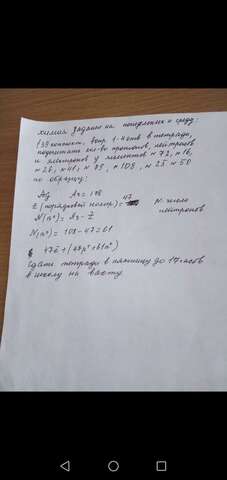 химия задание на понедельник и среду
§39 конспект, вопр. 1-4 упис в тетради,
подсчитать кол-во протонов, нейтронов
и электронов у элементов № 72, № 16,
№ 26, № 41, № 85, № 108, № 25 № 50
по образцу:
Ag Ar = 108
Z (порядковый номер) = 47
N - число
нейтронов
N(n°) = Ar - Z
N(n°) = 108 - 47 = 61
47ē + (47p⁺ + 61n°)
Сдать тетради в пятницу до 17 часов
в школу на вахту